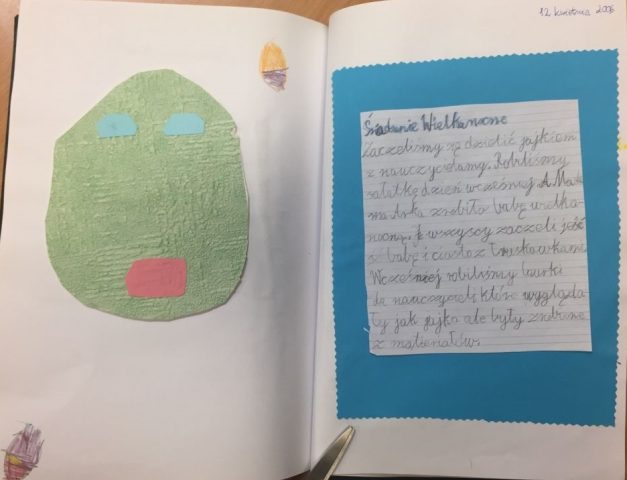 12 kwietnia 2006
Śniadanie Wielkanocne
Zaczeliśmy się dzielić jajkiem
z nauczycielamy. Robiliśmy
sałatkę dzień wcześniej. A
ma zrobiła babę wielka-
nocną. I wszyscy zaczeli jeść
babę i ciasto z truskawkami.
Wcześniej robiliśmy kurki
dla nauczycieli które wygląda-
ły jak jajka ale były zrobione
z materiałów.